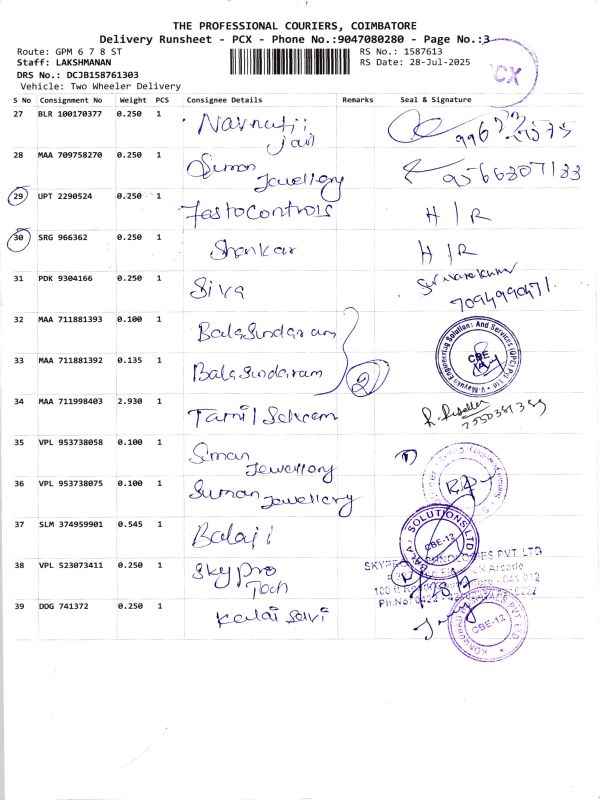 THE PROFESSIONAL COURIERS, COIMBATORE
Delivery Runsheet - PCX - Phone No.:9047080280 - Page No.:3
Route: GPM 6 7 8 ST
RS No.: 1587613
Staff: LAKSHMANAN
RS Date: 28-Jul-2025
DRS No.: DCJB158761303
Vehicle: Two Wheeler Delivery
CX
S No Consignment No Weight PCS Consignee Details Remarks Seal & Signature
27 BLR 100170377 0.250 1
28 MAA 709758270 0.250 1 Suman
Jewellery 9566307133
29 UPT 2290524 0.250 1 Festo Controls H/R
30 SRG 966362 0.250 1 Shankar H/R
31 PDK 9304166 0.250 1 Siva
32 MAA 711881393 0.100 1 BalaSundaram
33 MAA 711881392 0.135 1 BalaSundaram 2
CBE
34 MAA 711998403 2.930 1
35 VPL 953738058 0.100 1 Suman
Jewellory
36 VPL 953738075 0.100 1 Suman Jewellery
37 SLM 374959901 0.545 1 Balaji
BALAJI SOLUTIONS LTD
CBE-12
38 VPL 523073411 0.250 1 Sky pro
Tech
39 DDG 741372 0.250 1 Kalai Selvi
CBE-12